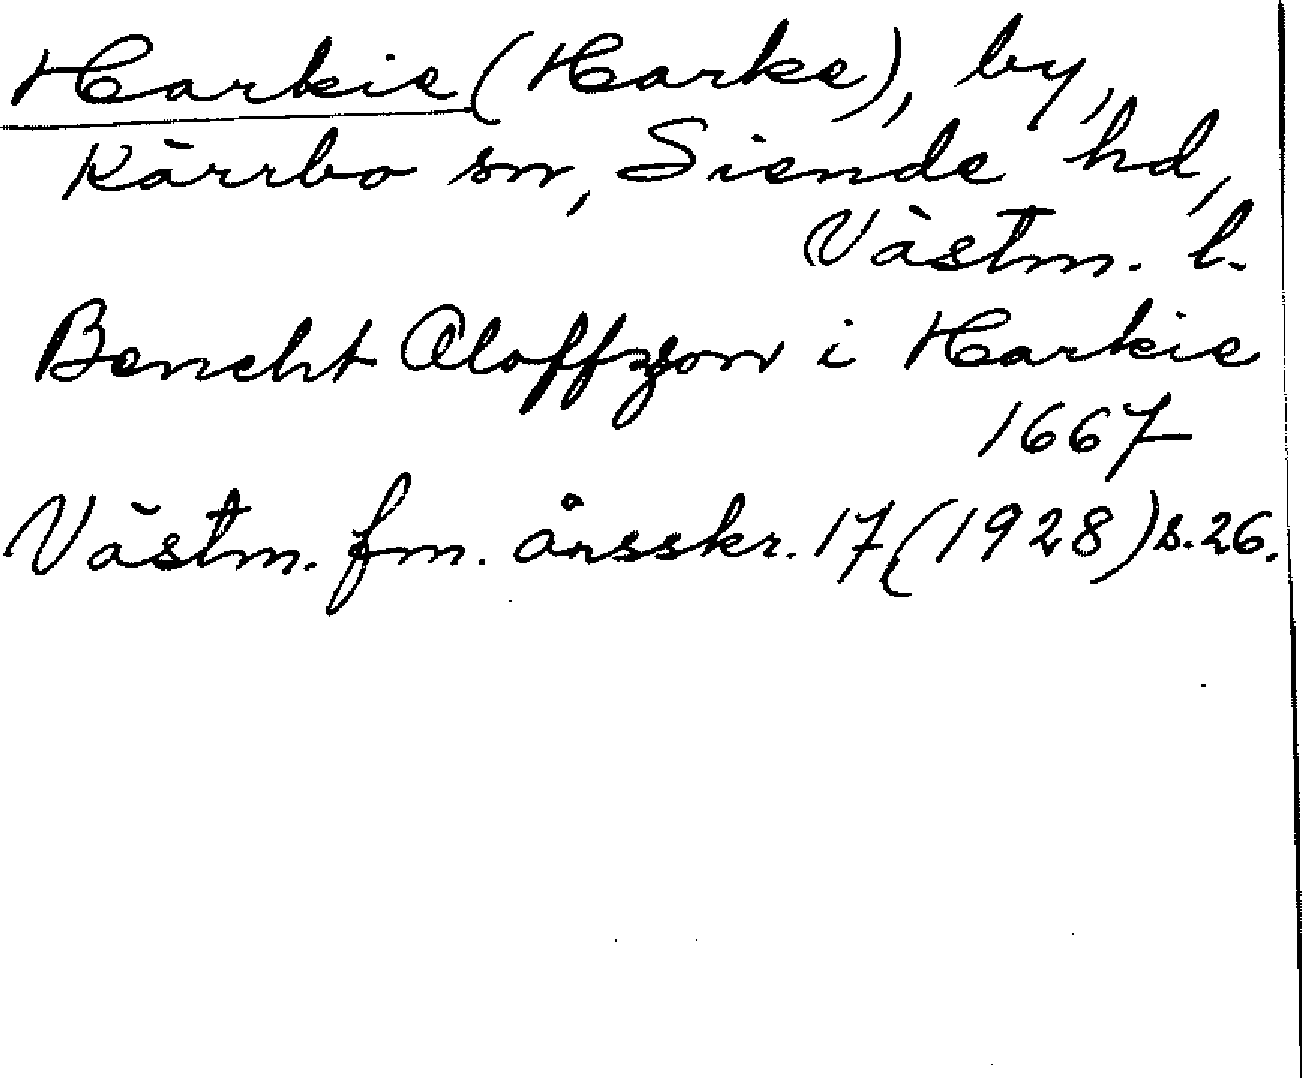 Harkie (Harke), by,
Kärrbo sn, Siende hd,
Västm. l.
Bencht Oloffzson i Harkie
1667
Västm. fm. årsskr. 17 (1928) s. 26.